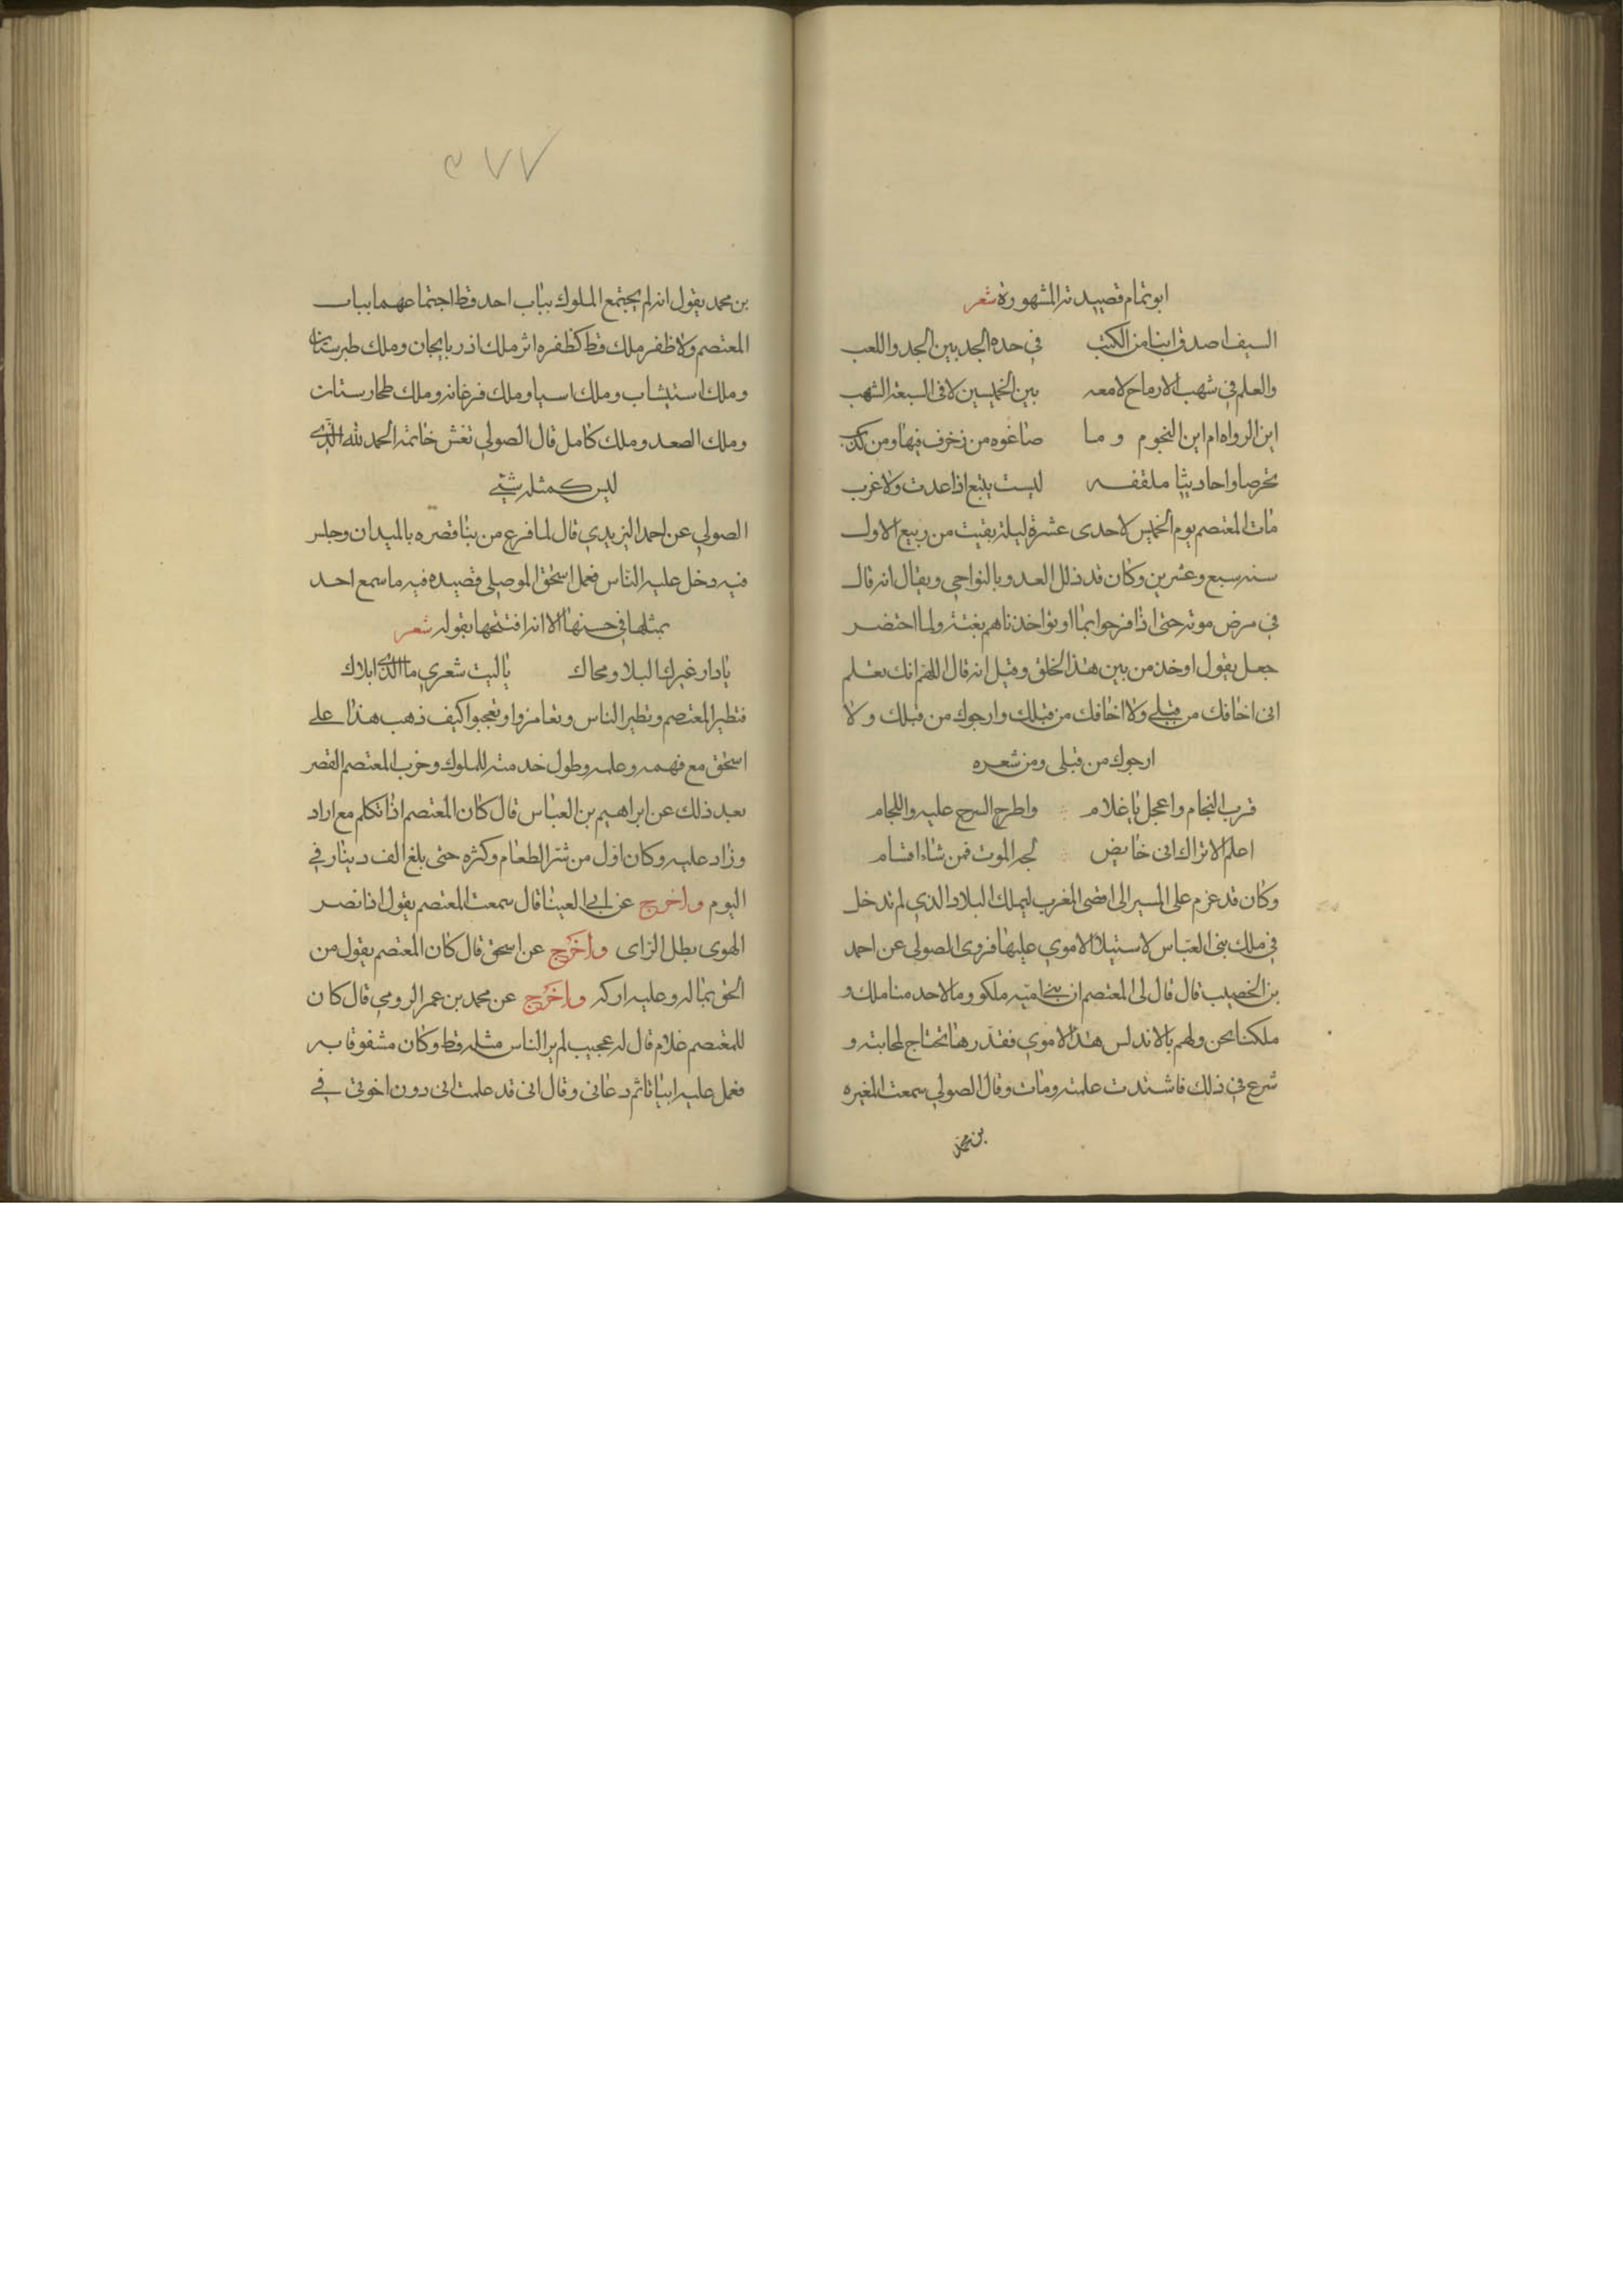 ابو تمام قصيدته المشهورة شعر
السيف اصدق ابنا من الكتب في حده الجد بين الجد واللعب
والعلم في شهب الارماح لامعه بين الخميسين لا في السبعة الشهب
اين الرواه ام اين النجوم وما صاغوه من زخرف فيها ومن كذب
تخرصا واحاديثا ملقفه ليست ينبع اذا عدت ولا غرب
مات المعتصم يوم الخميس لاحدى عشرة ليلة بقيت من ربيع الاول
سنه سبع وعشرين وكان قد ذلل العدو بالنواحي ويقال انه قال
في مرض موته حتى اذا فرحوا بما اوتوا اخذناهم بغتة ولما احتضر
جعل يقول اوخذ من بين هذا الخلق وقيل انه قال اللهم انك تعلم
انى اخافك من قبلي ولا اخافك من قبلك وارجوك من قبلك ولا
ارجوك من قبلى ومن شعره
قرب النجام واعجل يا غلام واطرح السرج عليه واللجام
اعلم الاتراك انى خايض لجه الموت فمن شاء اقام
وكان قد عزم على المسير الى اقصى المغرب ليملك البلاد الذي لم تدخل
في ملك بنى العباس لاستيلا الاموي عليها فروى الصولى عن احمد
بن الخصيب قال قال لى المعتصم ان بني اميه ملكو وما لاحد منا ملك و
ملكنا نحن ولهم بالاندلس هذا الاموي فقدر ها تحتاج لمحابته و
شرع في ذلك فاشتدت علته ومات وقال الصولي سمعت المغيره
بن محمد
٥٧٧
بن محمد يقول انه لم يجتمع الملوك بباب احد قط اجتماعهما بباب
المعتصم ولا ظفر ملك قط كظفره اثر ملك اذربايجان وملك طبرستان
وملك استيشاب وملك اسيا وملك فرغانه وملك طخارستان
وملك الصعد وملك كامل قال الصولي نغش خاتمه الحمد لله الذي
ليس كمثله شيئ
الصولي عن احمد اليزيدي قال لما فرع من بنا قصره بالميدان وجلس
فيه دخل عليه الناس فعمل اسحق الموصلي قصيده فيه ما سمع احد
بمثلها في حسنها الا انه افتتحها بقوله شعر
يا دار غيرك البلا ومحاك ياليت شعري ما الذي ابلاك
فتطير المعتصم وتطير الناس وتغامزوا وتعجبوا كيف ذهب هذا على
اسحق مع فهمه وعلمه وطول خدمته للملوك وخرب المعتصم القصر
بعد ذلك عن ابراهيم بن العباس قال كان المعتصم اذا تكلم مع اراد
وزاد عليه وكان اول من شتر الطعام وكثره حتى بلغ الف دينار في
اليوم واخرج عن ابي العينا قال سمعت المعتصم يقول اذا نصر
الهوى بطل الراى واخرج عن اسحق قال كان المعتصم يقول من
الحق بماله وعليه ادركه واخرج عن محمد بن عمر الرومي قال كان
للمعتصم غلام قال له عجيب لم ير الناس مثله قط وكان مشفوقا به
فعمل عليه ابياتا ثم دعانى وقال انى قد علمت انى دون اخوتى في